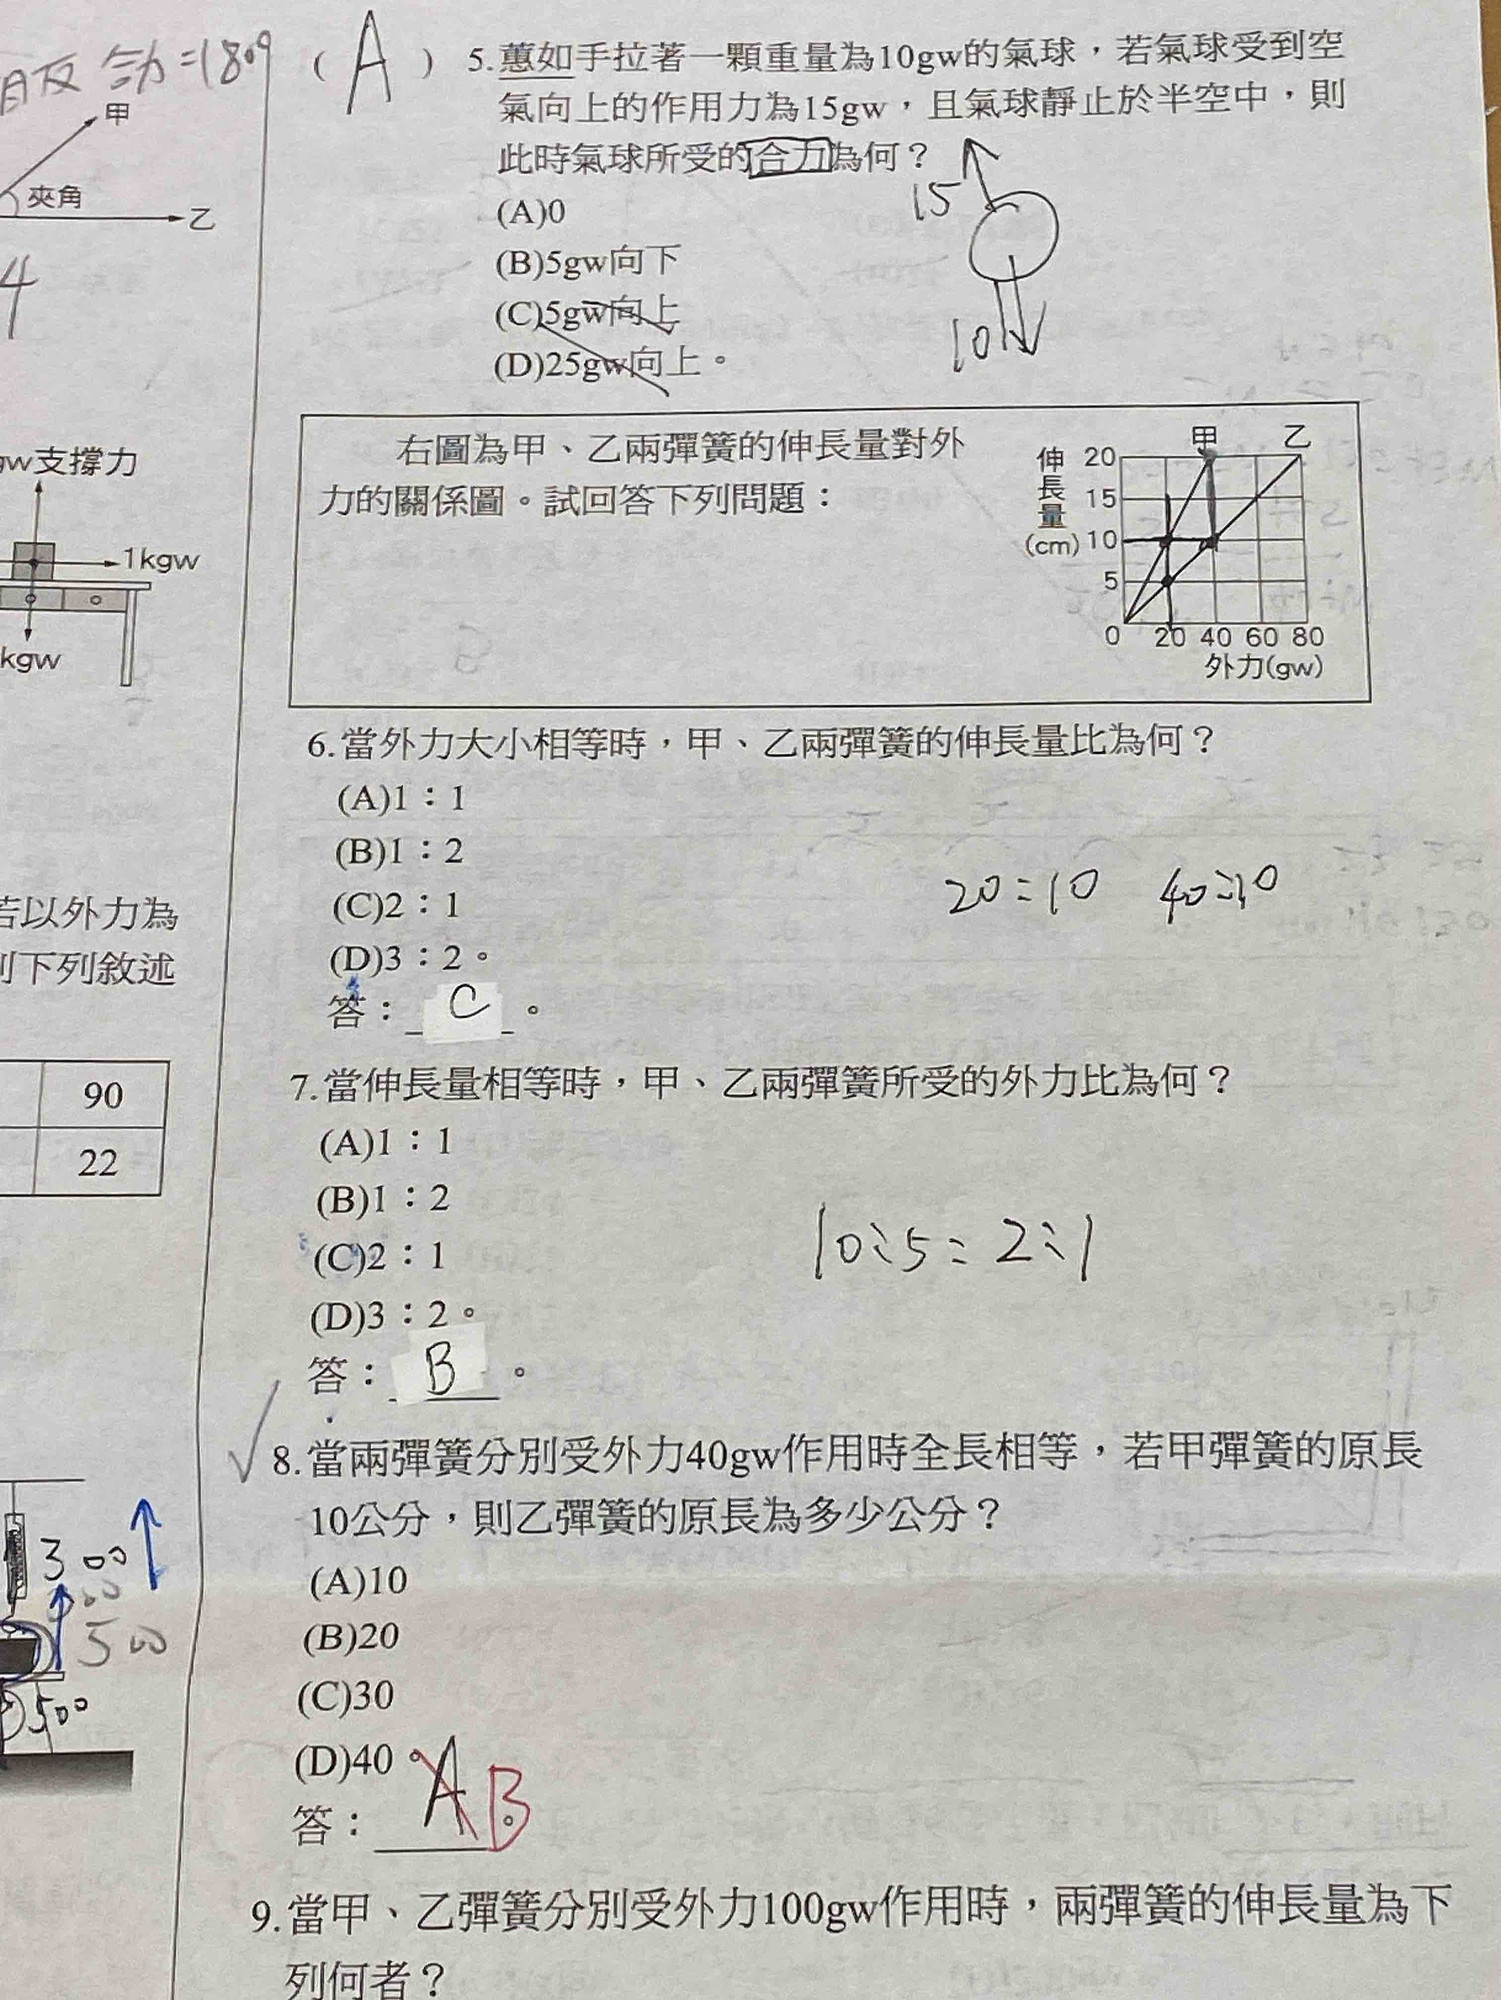 合力=180°
甲
夾角
乙
4
gw支撐力
1kgw
kgw
若以外力為
則下列敘述
90
22
300
500
500
( A ) 5.蕙如手拉著一顆重量為10gw的氣球，若氣球受到空
氣向上的作用力為15gw，且氣球靜止於半空中，則
此時氣球所受的合力為何？
(A)0
(B)5gw向下
(C)5gw向上
(D)25gw向上。
15
10
右圖為甲、乙兩彈簧的伸長量對外
力的關係圖。試回答下列問題：
甲 乙
伸長量(cm)
20
15
10
5
0 20 40 60 80
外力(gw)
6.當外力大小相等時，甲、乙兩彈簧的伸長量比為何？
(A)1：1
(B)1：2
(C)2：1
(D)3：2。
20:10
答：C。
7.當伸長量相等時，甲、乙兩彈簧所受的外力比為何？
(A)1：1
(B)1：2
(C)2：1
(D)3：2。
10:5=2:1
答：B。
8.當兩彈簧分別受外力40gw作用時全長相等，若甲彈簧的原長
10公分，則乙彈簧的原長為多少公分？
(A)10
(B)20
(C)30
(D)40。
答：A B。
9.當甲、乙彈簧分別受外力100gw作用時，兩彈簧的伸長量為下
列何者？